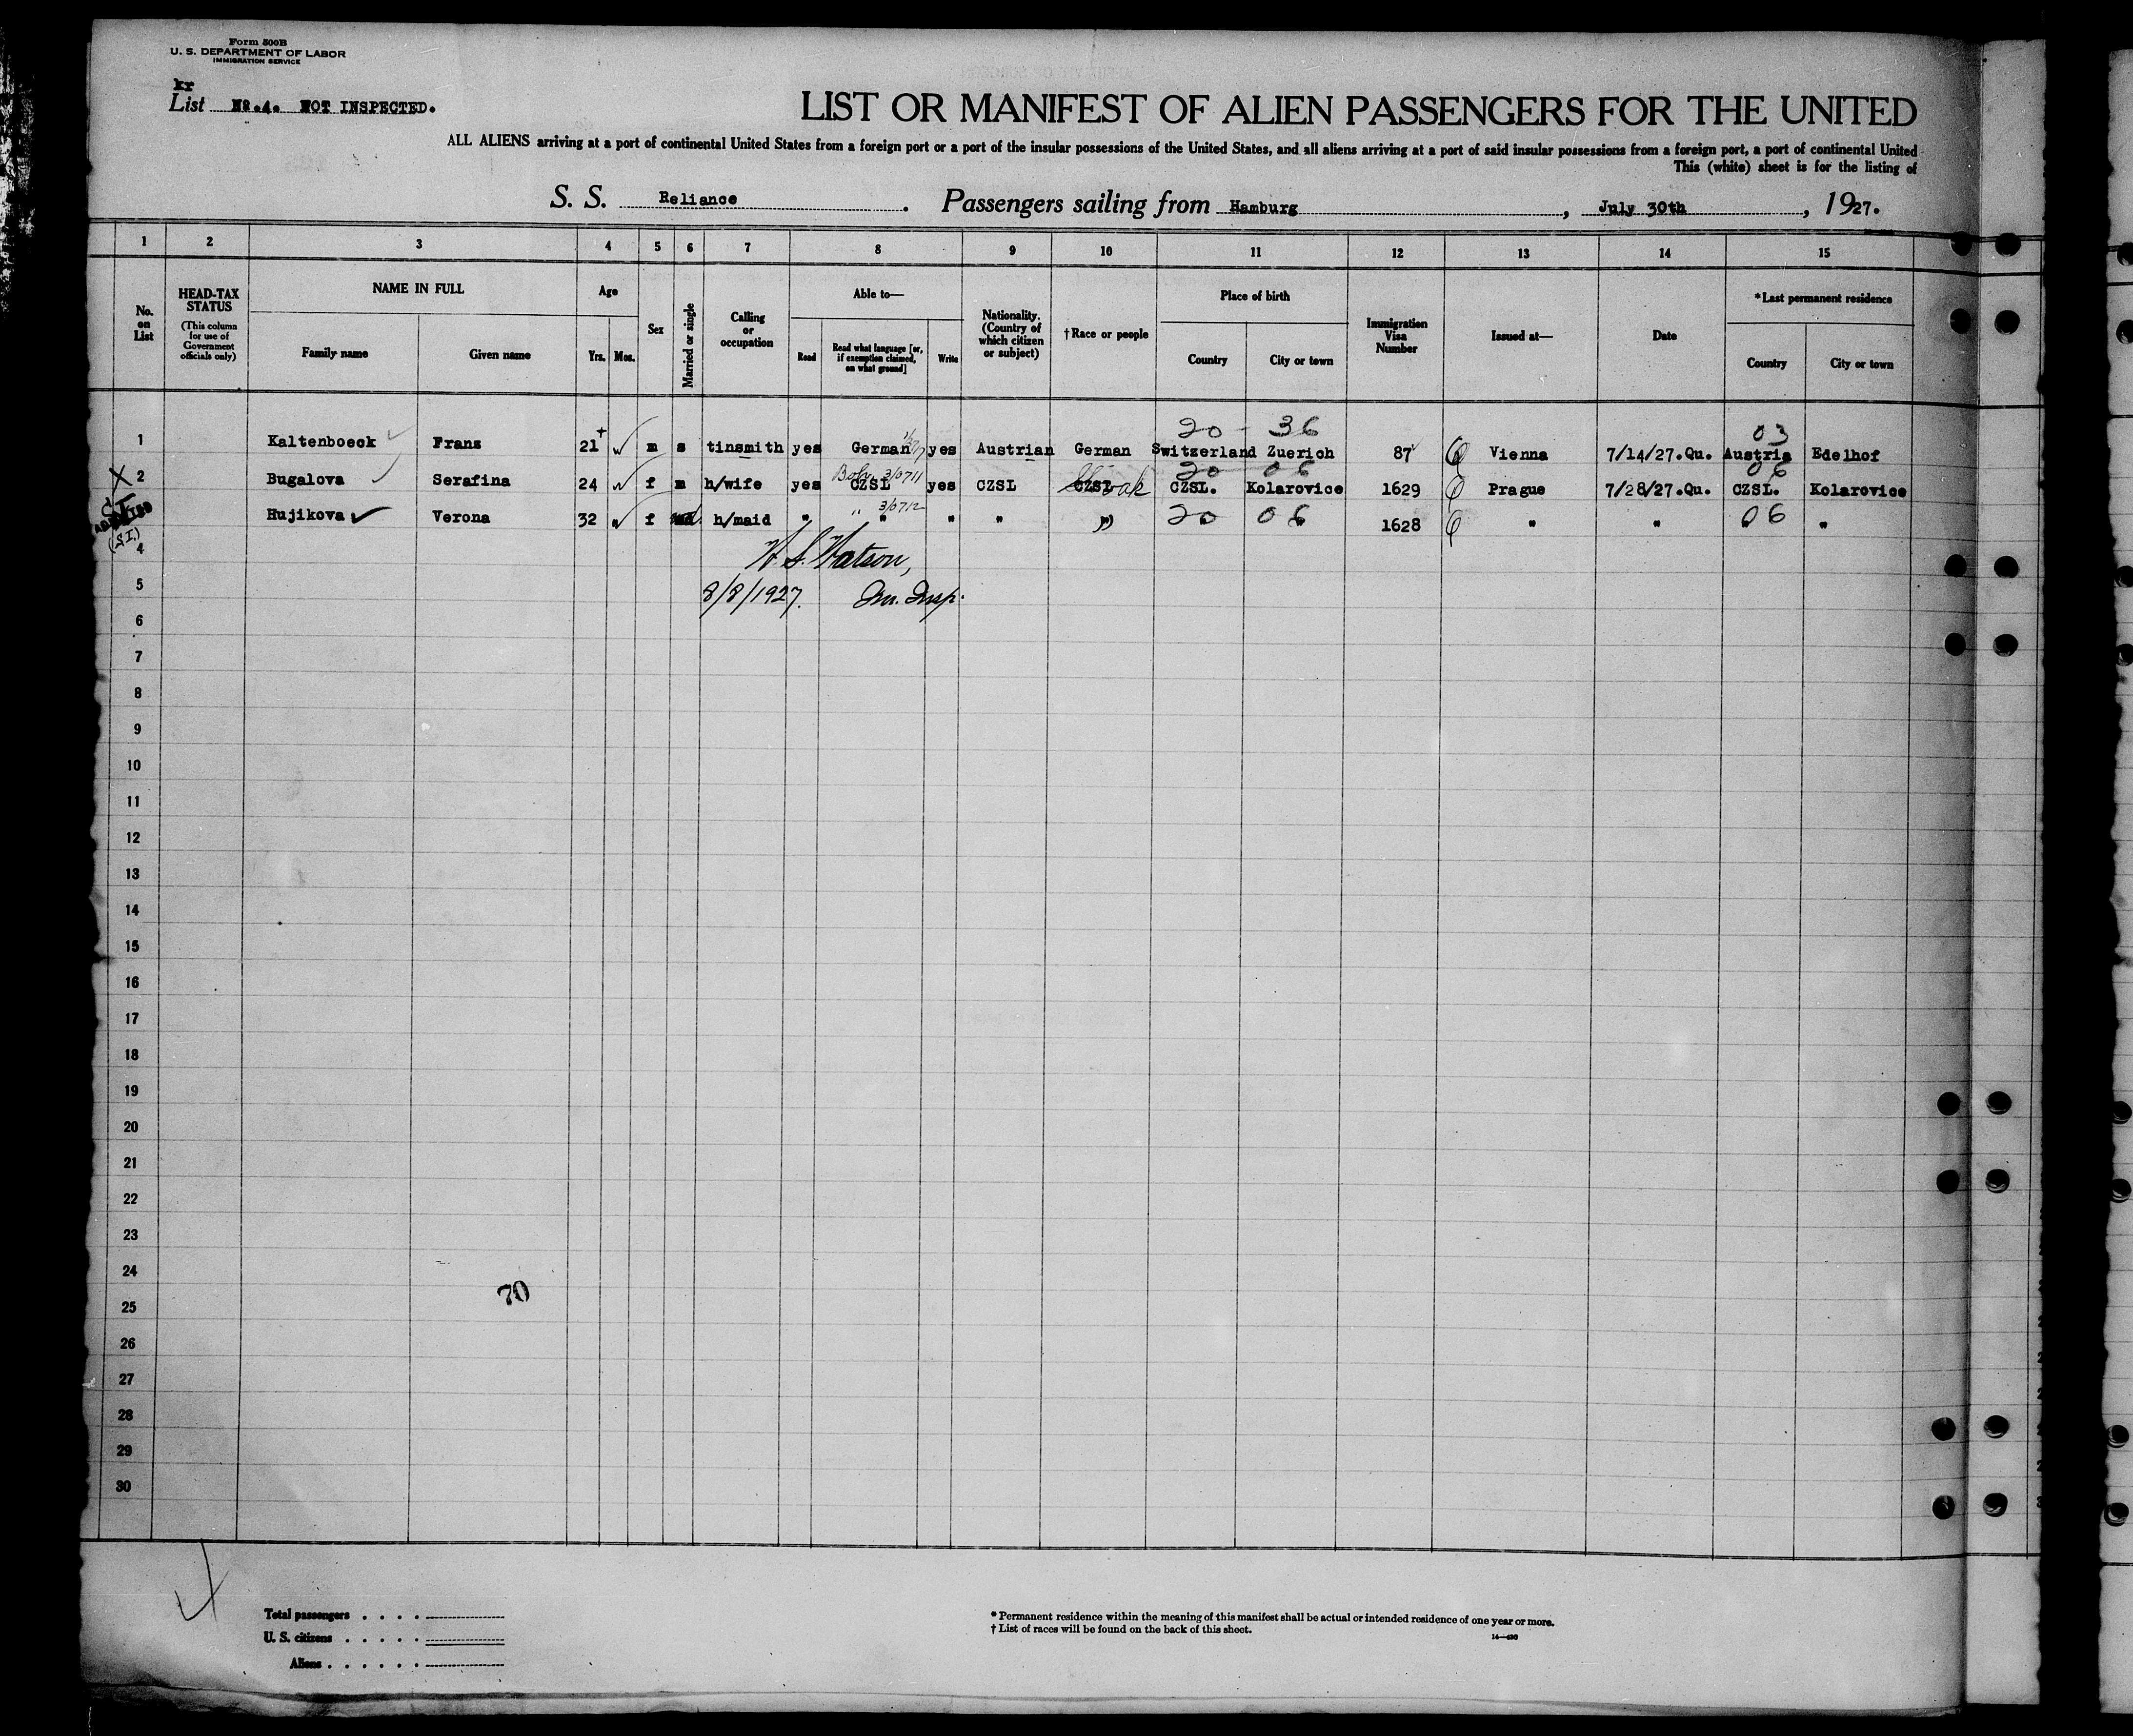 Form 500B
U. S. DEPARTMENT OF LABOR
IMMIGRATION SERVICE
kr
List No.4. NOT INSPECTED.
LIST OR MANIFEST OF ALIEN PASSENGERS FOR THE UNITED
ALL ALIENS arriving at a port of continental United States from a foreign port or a port of the insular possessions of the United States, and all aliens arriving at a port of said insular possessions from a foreign port, a port of continental United
This (white) sheet is for the listing of
S. S. Reliance. Passengers sailing from Hamburg, July 30th, 1927.
1 2 3 4 5 6 7 8 9 10 11 12 13 14 15
No. on List
HEAD-TAX STATUS
(This column for use of Government officials only)
NAME IN FULL
Family name Given name
Age
Yrs. Mos.
Sex
Married or single
Calling or occupation
Able to—
Read Read what language [or, if exemption claimed, on what ground] Write
Nationality. (Country of which citizen or subject)
†Race or people
Place of birth
Country City or town
Immigration Visa Number
Issued at—
Date
*Last permanent residence
Country City or town
20 - 36 03
1 Kaltenboeck Franz 21 m s tinsmith yes German yes Austrian German Switzerland Zuerich 87 Vienna 7/14/27.Qu. Austria Edelhof
3/0711 20 06 06
X 2 Bugalova Serafina 24 f m h/wife yes CZSL yes CZSL CZSL Slovak CZSL. Kolarovice 1629 Prague 7/28/27.Qu. CZSL. Kolarovice
SI ADMITTED Hujikova Verona 32 " f h/maid " " 3/0712 " " " 20 06 " 1628 " " 06 "
(S.I.)
4
W. S. Watson,
5
8/8/1927. Im. Insp.
6
7
8
9
10
11
12
13
14
15
16
17
18
19
20
21
22
23
24
70
25
26
27
28
29
30
Total passengers . . . .
U. S. citizens . . . . .
Aliens . . . . . .
* Permanent residence within the meaning of this manifest shall be actual or intended residence of one year or more.
† List of races will be found on the back of this sheet.